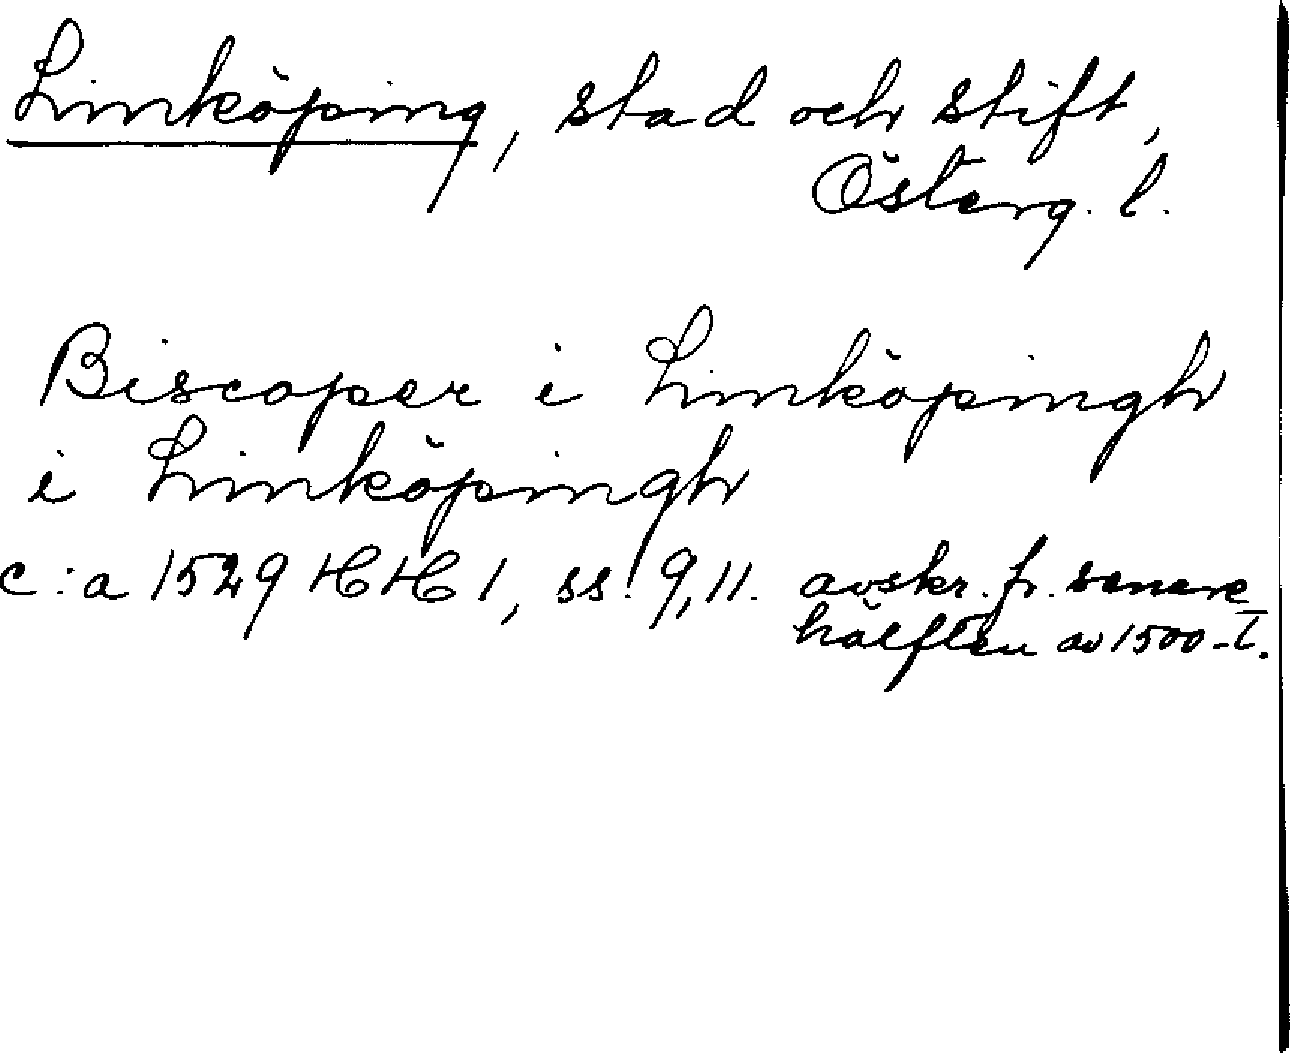 Linköping, stad och stift,
Österg. l.
Biscoper i Linköpingh
i Linköpingh
c:a 1529 HH 1, ss. 9, 11. avskr. fr. senare
hälften av 1500-t.